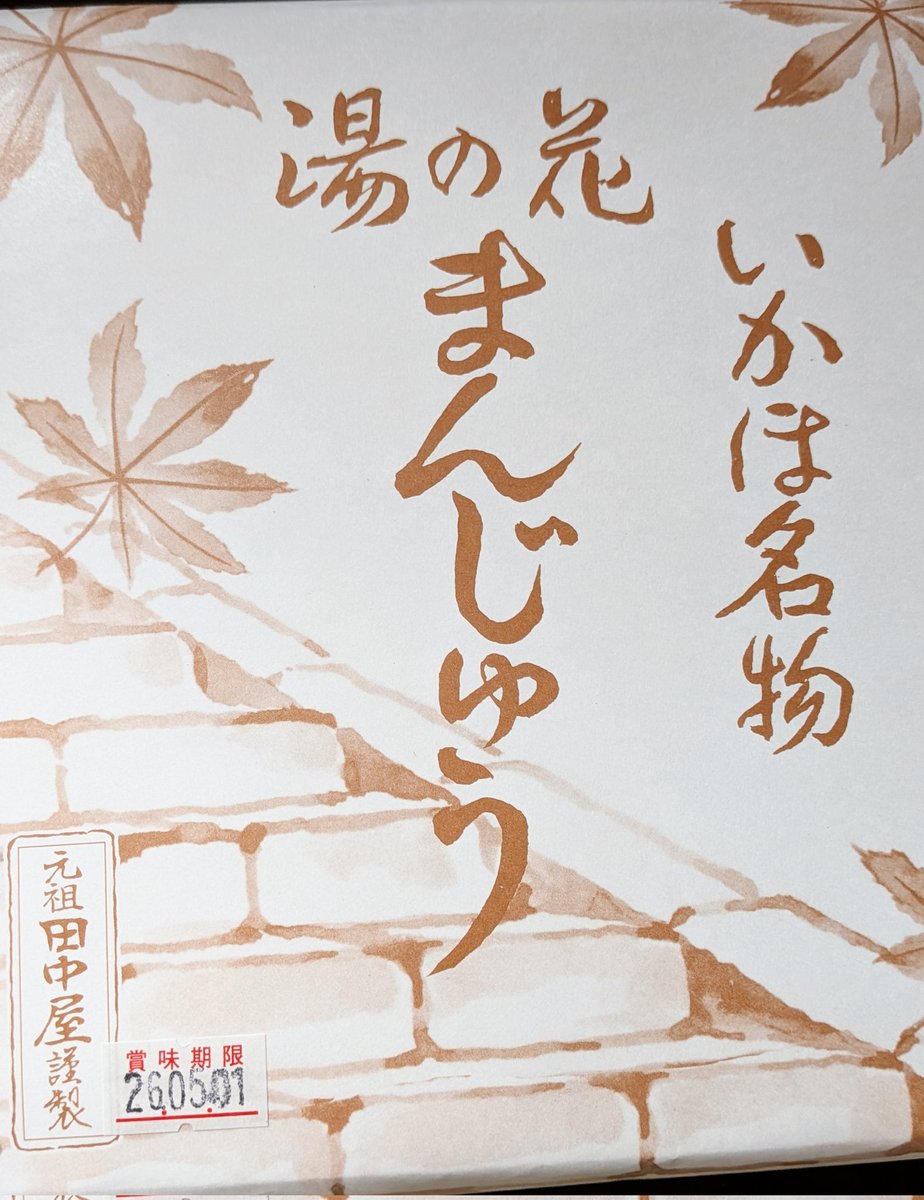 いかほ名物
湯の花
まんじゅう
元祖田中屋謹製
賞味期限
26.05.01